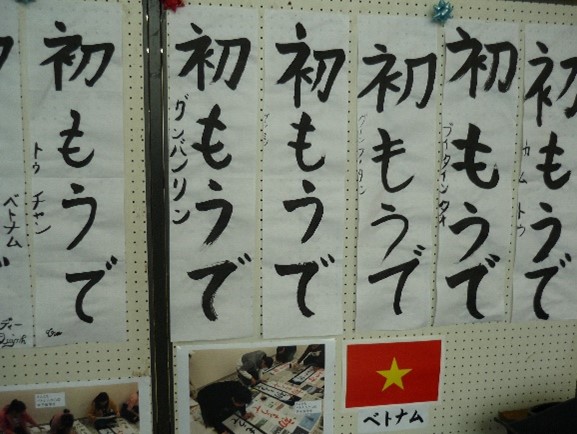 初もうで
トゥ チャン
ベトナム
初もうで
グンバンリン
初もうで
初もうで
初もうで
ブイタインタイ
初もうで
カム トゥ
ベトナム